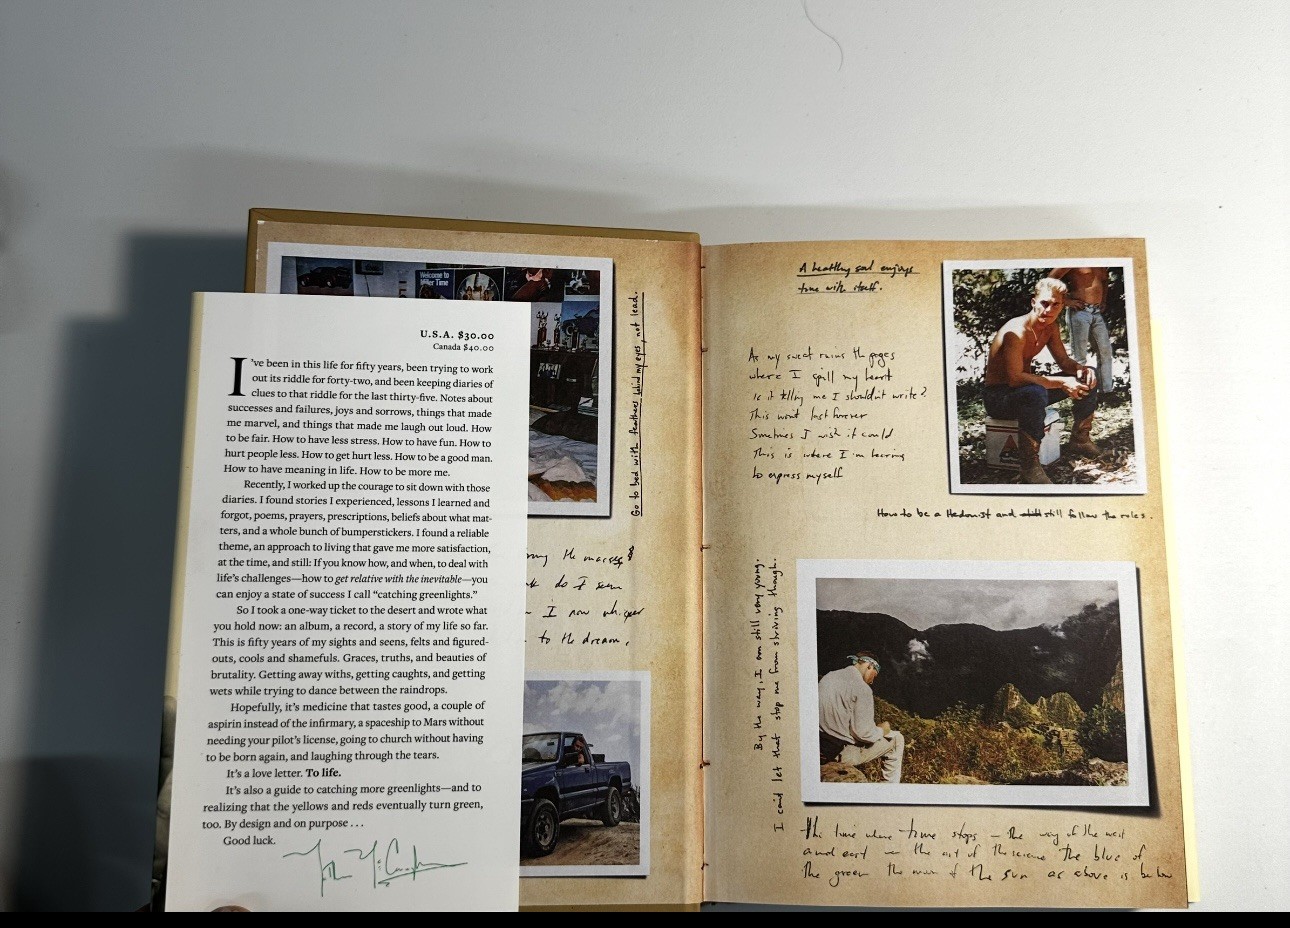 Welcome to
Miller Time
Go to bed with feathers behind my eyes, not lead.
U.S.A. $30.00
Canada $40.00
I've been in this life for fifty years, been trying to work
out its riddle for forty-two, and been keeping diaries of
clues to that riddle for the last thirty-five. Notes about
successes and failures, joys and sorrows, things that made
me marvel, and things that made me laugh out loud. How
to be fair. How to have less stress. How to have fun. How to
hurt people less. How to get hurt less. How to be a good man.
How to have meaning in life. How to be more me.
Recently, I worked up the courage to sit down with those
diaries. I found stories I experienced, lessons I learned and
forgot, poems, prayers, prescriptions, beliefs about what mat-
ters, and a whole bunch of bumperstickers. I found a reliable
theme, an approach to living that gave me more satisfaction,
at the time, and still: If you know how, and when, to deal with
life's challenges—how to get relative with the inevitable—you
can enjoy a state of success I call "catching greenlights."
So I took a one-way ticket to the desert and wrote what
you hold now: an album, a record, a story of my life so far.
This is fifty years of my sights and seens, felts and figured-
outs, cools and shamefuls. Graces, truths, and beauties of
brutality. Getting away withs, getting caughts, and getting
wets while trying to dance between the raindrops.
Hopefully, it's medicine that tastes good, a couple of
aspirin instead of the infirmary, a spaceship to Mars without
needing your pilot's license, going to church without having
to be born again, and laughing through the tears.
It's a love letter. To life.
It's also a guide to catching more greenlights—and to
realizing that the yellows and reds eventually turn green,
too. By design and on purpose . . .
Good luck.
the masses
do I seem
I now whisper
to the dream,
A healthy soul enjoys
time with itself.
As my sweat ruins the pages
where I spill my heart
Is it telling me I shouldn't write?
This wont last forever
Sometimes I wish it could
This is where I'm learning
to express myself
How to be a Hedonist and still still follow the rules.
By the way, I am still very young.
I cant let that stop me from striving though.
the time where time stops – the way of the west
and east – the art of the science the blue of
the green the man of the sun as above is below